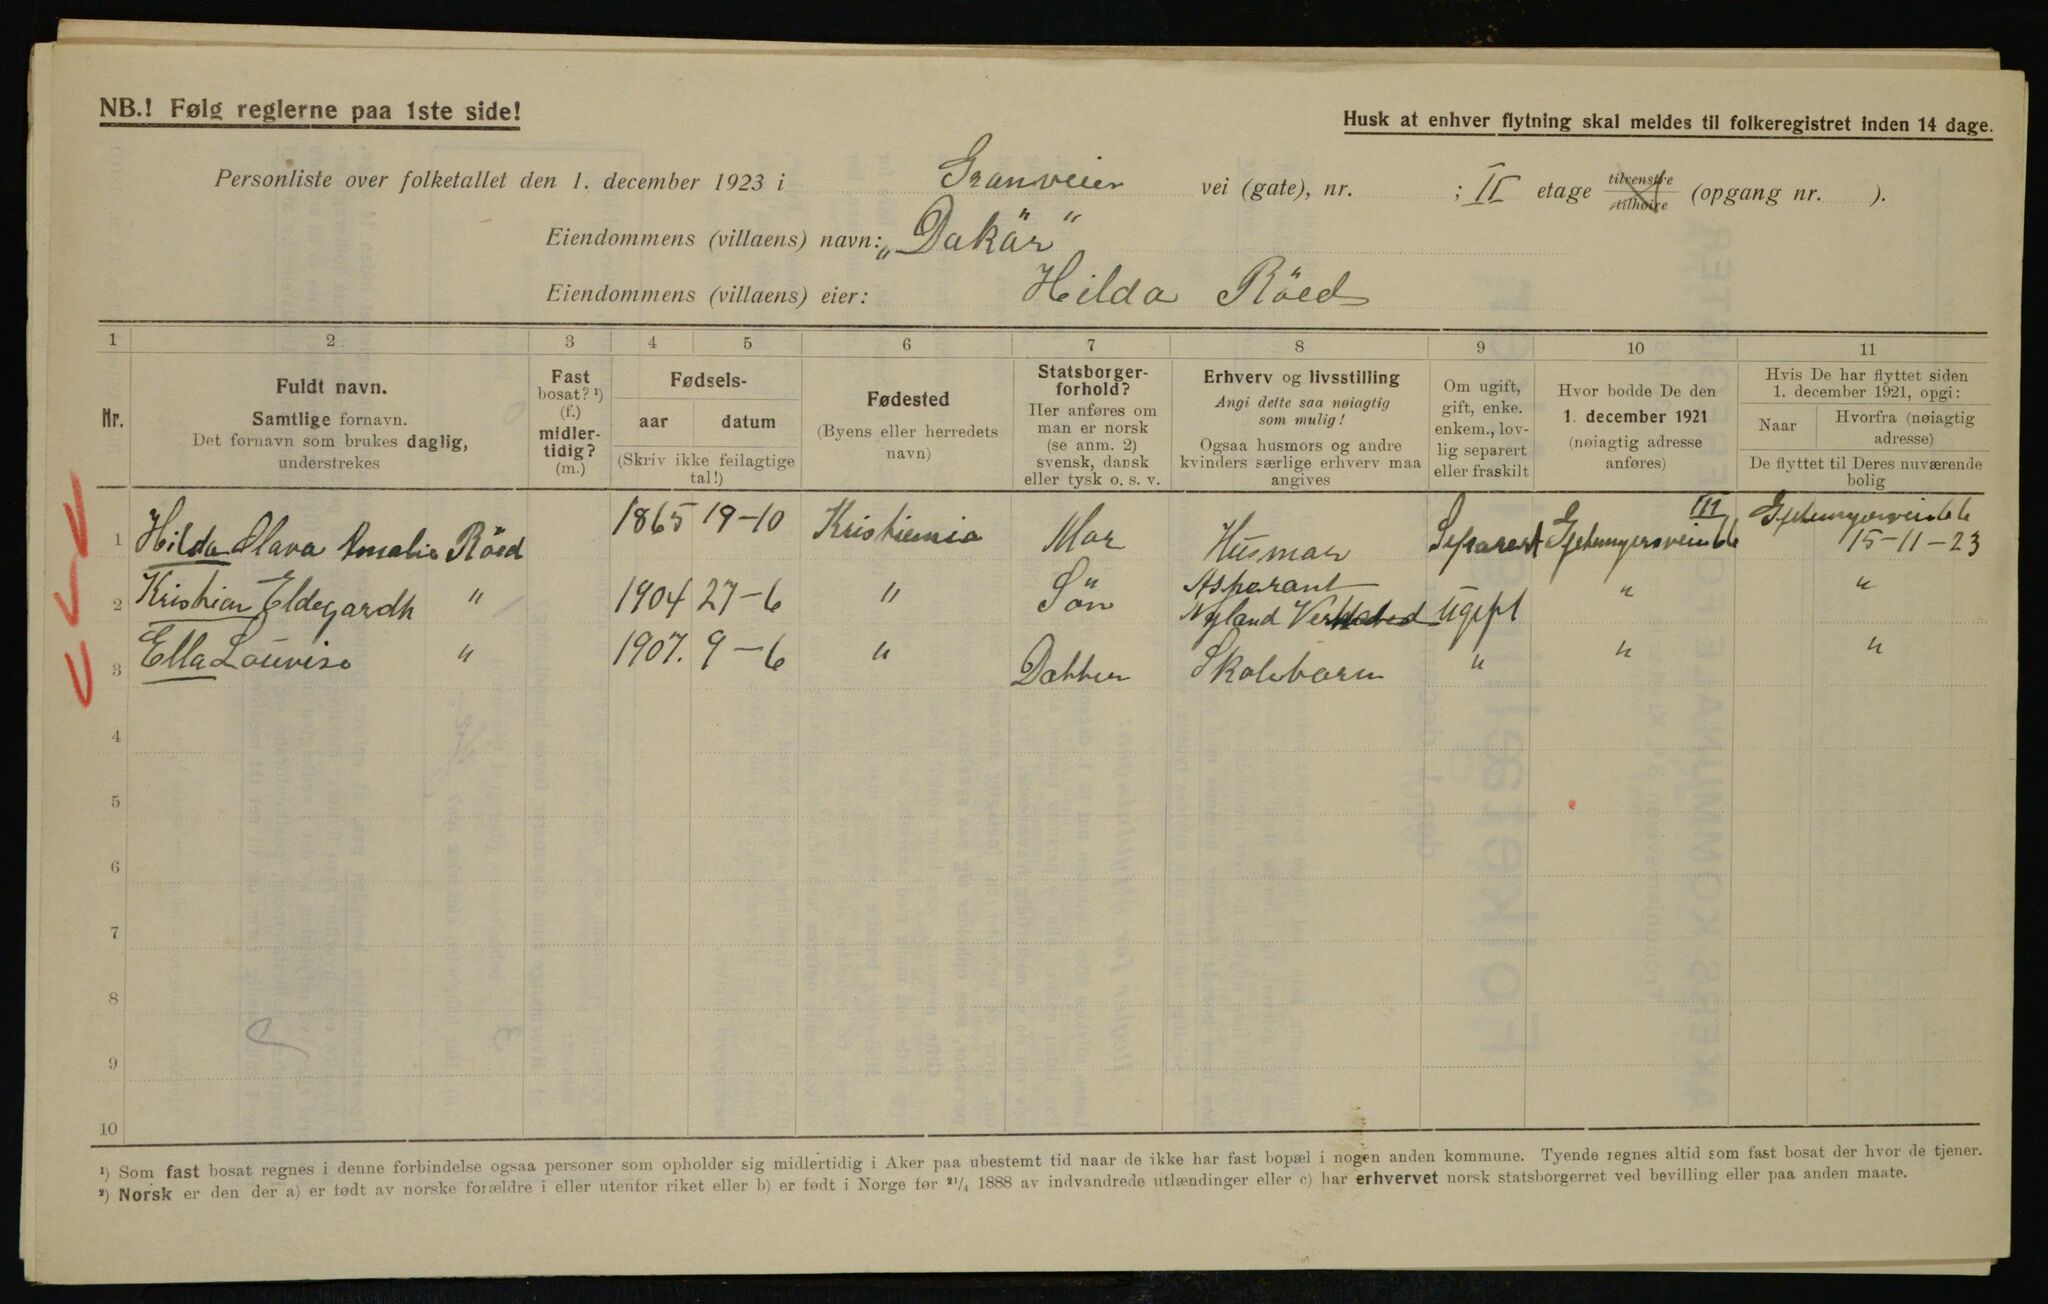 NB.! Følg reglerne paa 1ste side!
Husk at enhver flytning skal meldes til folkeregistret inden 14 dage.
Personliste over folketallet den 1. december 1923 i Granveien vei (gate), nr. ; II etage tilvenstre tilhøire (opgang nr. ).
Eiendommens (villaens) navn: „Dakär“
Eiendommens (villaens) eier: Hilda Röed
1 2 3 4 5 6 7 8 9 10 11
Nr.
Fuldt navn.
Samtlige fornavn.
Det fornavn som brukes daglig,
understrekes
Fast
bosat? ¹)
(f.)
midler-
tidig?
(m.)
Fødsels-
aar datum
(Skriv ikke feilagtige
tal!)
Fødested
(Byens eller herredets
navn)
Statsborger-
forhold?
Her anføres om
man er norsk
(se anm. 2)
svensk, dansk
eller tysk o. s. v.
Erhverv og livsstilling
Angi dette saa nøiagtig
som mulig!
Ogsaa husmors og andre
kvinders særlige erhverv maa
angives
Om ugift,
gift, enke.
enkem., lov-
lig separert
eller fraskilt
Hvor bodde De den
1. december 1921
(nøiagtig adresse
anføres)
Hvis De har flyttet siden
1. december 1921, opgi:
Naar Hvorfra (nøiagtig
adresse)
De flyttet til Deres nuværende
bolig
1 Hilda Amalie Röed 1865 19-10 Kristiania Mor Husmor Separert III
15-11-23
2 Kristian Eldegardh " 1904 27-6 " Sön Aspirant
Nyland Verksted Ugift " "
3 Ella Lovise " 1907. 9-6 " Datter Skolebarn " " "
4
5
6
7
8
9
10
¹) Som fast bosat regnes i denne forbindelse ogsaa personer som opholder sig midlertidig i Aker paa ubestemt tid naar de ikke har fast bopæl i nogen anden kommune. Tyende regnes altid som fast bosat der hvor de tjener.
²) Norsk er den der a) er født av norske forældre i eller utenfor riket eller b) er født i Norge før ²¹/₄ 1888 av indvandrede utlændinger eller c) har erhvervet norsk statsborgerret ved bevilling eller paa anden maate.